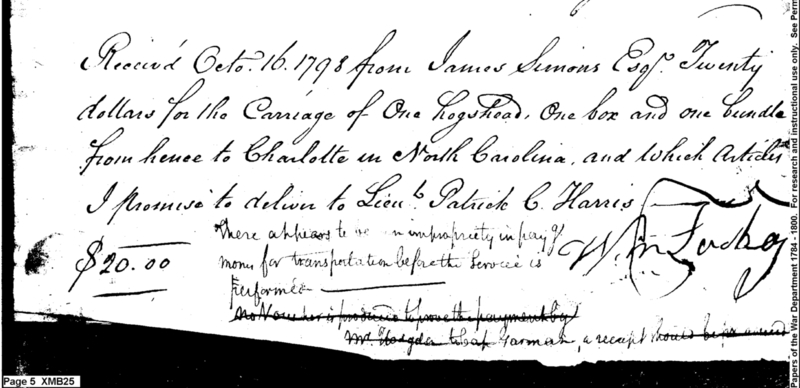 Receiv'd Octo. 16. 1798 from James Simons Esqr. Twenty
dollars for the Carriage of One hogshead, One box and one bundle
from hence to Charlotte in North Carolina, and which Articles
I promise to deliver to Lieut. Patrick C. Harris
$20.00
Wm
there appears to be an impropriety in payg
money for transportation before the Service is
performed
no Voucher is produced to prove the payment by
Mr. Hodgdon to Cap a receipt should be
Page 5 XMB25
Papers of the War Department 1784 - 1800. For research and instructional use only. See Perm